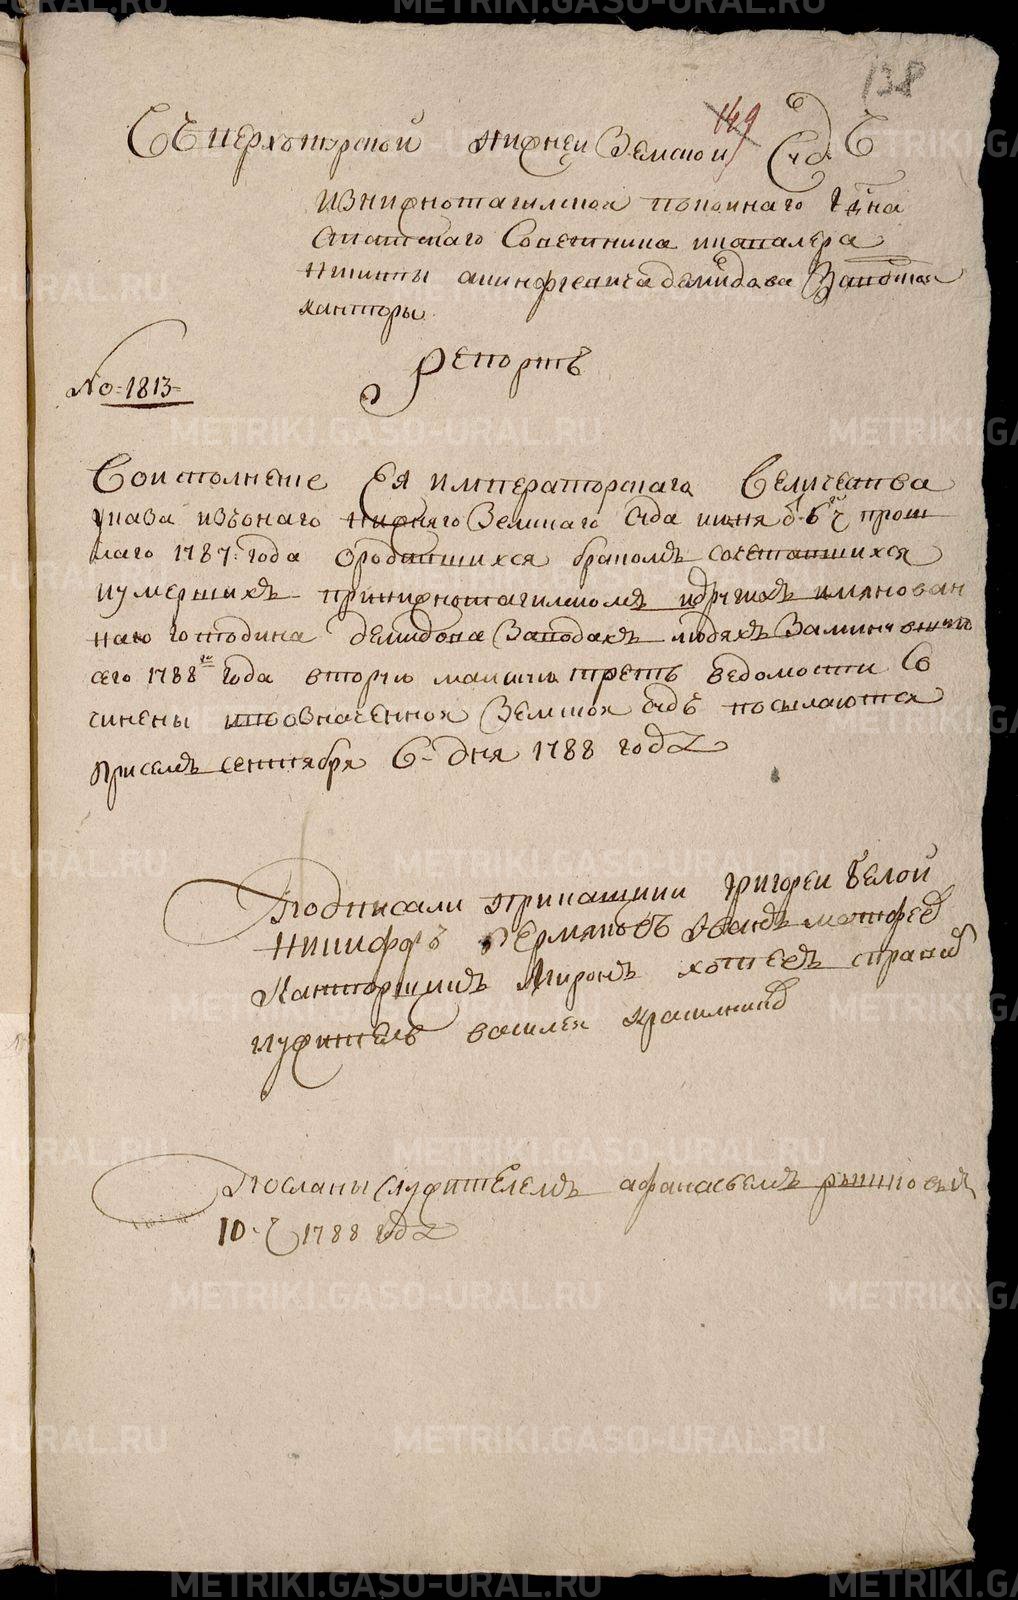 138
149
Въ верхотурской нижнеи Земскои Судъ
Из нижнотагилской покоинаго г-дина
статскаго Советника и кавалера
никиты акинфиевича демидова Заводской
канторы
Репортъ
No 1813
Во исполнение Ея императорскаго Величества
указа из онаго нижняго Земскаго Суда июня 6 ч прош
лаго 1787 года о родившихся браком сочетавшихся
и умерших при нижнотагилском и других имянован
наго господина демидова Заводах людях За минувшию
сего 1788 года вторую майскую треть ведомости Со
чинены и во означенной Земской судъ посылаются
При сем сентября 6 дня 1788 года
Подписали прикащики григореи белой
никифоръ Ермаковъ Иван матфеев
Канторщик Мирон хотеев справил
служитель василеи красилников
Посланы служителем афанасьем
10 ч 1788 года
METRIKI.GASO-URAL.RU